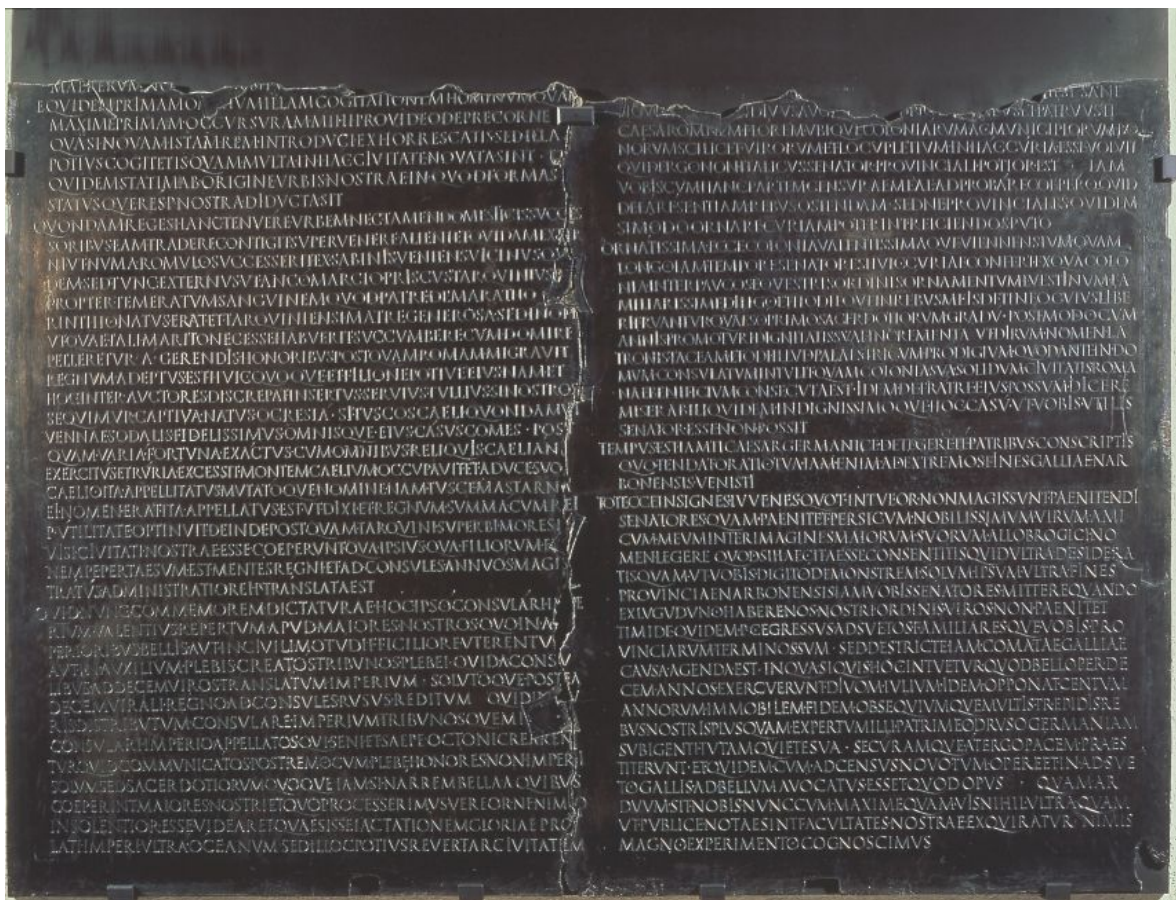 MAE RERVM NO
EQVIDEM PRIMAM OMNIVM ILLAM COGITATIONEM HOMINVM QVAM
MAXIME PRIMAM OCCVRSVRAM MIHI PROVIDEO DEPRECOR NE
QVASI NOVAM ISTAM REM INTRODVCI EXHORRESCATIS SED ILLA
POTIVS COGITETIS QVAM MVLTA IN HAC CIVITATE NOVATA SINT
QVIDEM STATIM AB ORIGINE VRBIS NOSTRAE IN QVOD FORMAS
STATVSQVE RES P NOSTRA DIDVCTA SIT
QVONDAM REGES HANC TENVERE VRBEM NEC TAMEN DOMESTICIS SVCCES
SORIBVS EAM TRADERE CONTIGIT SVPERVENERE ALIENI ET QVIDAM EXTER
NI VT NVMA ROMVLO SVCCESSERIT EX SABINIS VENIENS VICINVS QVI
DEM SED TVNC EXTERNVS VT ANCO MARCIO PRISCVS TARQVINIVS
PROPTER TEMERATVM SANGVINEM QVOD PATRE DEMARATHO CO
RINTHIO NATVS ERAT ET TARQVINIENSI MATRE GENEROSA SED INOPI
VT QVAE TALI MARITO NECESSE HABVERIT SVCCVMBERE CVM DOMI RE
PELLERETVR A GERENDIS HONORIBVS POSTQVAM ROMAM MIGRAVIT
REGNVM ADEPTVS EST HVIC QVOQVE ET FILIO NEPOTIVE EIVS NAM ET
HOC INTER AVCTORES DISCREPAT INSERTVS SERVIVS TVLLIVS SI NOSTROS
SEQVIMVR CAPTIVA NATVS OCRESIA · SI TVSCOS CAELI QVONDAM VI
VENNAE SODALIS FIDELISSIMVS OMNISQVE EIVS CASVS COMES · POST
QVAM VARIA FORTVNA EXACTVS CVM OMNIBVS RELIQVIS CAELIANI
EXERCITVS ETRVRIA EXCESSIT MONTEM CAELIVM OCCVPAVIT ET A DVCE SVO
CAELIO ITA APPELLITATVS MVTATOQVE NOMINE NAM TVSCE MASTARNA
EI NOMEN ERAT ITA APPELLATVS EST VT DIXI ET REGNVM SVMMA CVM REI
P VTILITATE OPTINVIT DEINDE POSTQVAM TARQVINI SVPERBI MORES IN
VISI CIVITATI NOSTRAE ESSE COEPERVNT QVA IPSIVS QVA FILIORVM EI
NEMPE PERTAESVM EST MENTES REGNI ET AD CONSVLES ANNVOS MAGIS
TRATVS ADMINISTRATIO REI P TRANSLATA EST
QVID NVNC COMMEMOREM DICTATVRAE HOC IPSO CONSVLARI IMPE
RIVM VALENTIVS REPERTVM APVD MAIORES NOSTROS QVO IN A
PERIORIBVS BELLIS AVT IN CIVILI MOTV DIFFICILIORE VTERENTVR
AVT IN AVXILIVM PLEBIS CREATOS TRIBVNOS PLEBEI QVID A CONSV
LIBVS AD DECEMVIROS TRANSLATVM IMPERIVM · SOLVTOQVE POSTEA
DECEMVIRALI REGNO AD CONSVLES RVSVS REDITVM QVID IN
RIS DISTRIBVTVM CONSVLARE IMPERIVM TRIBVNOSQVE MI
CONSVLARI IMPERIO APPELLATOS QVI SENI ET SAEPE OCTONI CREAREN
TVR QVID COMMVNICATOS POSTREMO CVM PLEBE HONORES NON IMPERI
SOLVM SED SACERDOTIORVM QVOQVE IAM SI NARREM BELLA A QVIBVS
COEPERINT MAIORES NOSTRI ET QVO PROCESSERIMVS VEREOR NE NIMIO
INSOLENTIOR ESSE VIDEAR ET QVAESISSE IACTATIONEM GLORIAE PRO
LATI IMPERI VLTRA OCEANVM SED ILLOC POTIVS REVERTAR CIVITATEM
SANE
NOVO PATRVVS TI
CAESAR OMNEM FLOREM VBIQVE COLONIARVM AC MVNICIPIORVM BO
NORVM SCILICET VIRORVM ET LOCVPLETIVM IN HAC CVRIA ESSE VOLVIT
QVID ERGO NON ITALICVS SENATOR PROVINCIALI POTIOR EST IAM
VOBIS CVM HANC PARTEM CENSVRAE MEAE ADPROBARE COEPERO QVID
DE EA RE SENTIAM REBVS OSTENDAM SED NE PROVINCIALES QVIDEM
SI MODO ORNARE CVRIAM POTERINT REICIENDOS PVTO
ORNATISSIMA ECCE COLONIA VALENTISSIMAQVE VIENNENSIVM QVAM
LONGO IAM TEMPORE SENATORES HVIC CVRIAE CONFERT EX QVA COLO
NIA INTER PAVCOS EQVESTRIS ORDINIS ORNAMENTVM L VESTINVM FA
MILIARISSIME DILIGO ET HODIEQVE IN REBVS MEIS DETINEO CVIVS LIBE
RI FRVANTVR QVAESO PRIMO SACERDOTIORVM GRADV · POST MODO CVM
ANNIS PROMOTVRI DIGNITATIS SVAE INCREMENTA VT DIRVM NOMEN LA
TRONIS TACEAM ET ODI ILLVD PALAESTRICVM PRODIGIVM QVOD ANTE IN DO
MVM CONSVLATVM INTVLIT QVAM COLONIA SVA SOLIDVM CIVITATIS ROMA
NAE BENIFICIVM CONSECVTA EST · IDEM DE FRATRE EIVS POSSVM DICERE
MISERABILI QVIDEM INDIGNISSIMOQVE HOC CASV VT VOBIS VTILIS
SENATOR ESSE NON POSSIT
TEMPVS EST IAM TI CAESAR GERMANICE DETEGERE TE PATRIBVS CONSCRIPTIS
QVO TENDAT ORATIO TVA IAM ENIM AD EXTREMOS FINES GALLIAE NAR
BONENSIS VENISTI
TOT ECCE INSIGNES IVVENES QVOT INTVEOR NON MAGIS SVNT PAENITENDI
SENATORES QVAM PAENITET PERSICVM NOBILISSIMVM VIRVM AMI
CVM MEVM INTER IMAGINES MAIORVM SVORVM ALLOBROGICI NO
MEN LEGERE QVOD SI HAEC ITA ESSE CONSENTITIS QVID VLTRA DESIDERA
TIS QVAM VT VOBIS DIGITO DEMONSTREM SOLVM IPSVM VLTRA FINES
PROVINCIAE NARBONENSIS IAM VOBIS SENATORES MITTERE QVANDO
EX LVGVDVNO HABERE NOS NOSTRI ORDINIS VIROS NON PAENITET
TIMIDE QVIDEM P C EGRESSVS ADSVETOS FAMILIARESQVE VOBIS PRO
VINCIARVM TERMINOS SVM · SED DESTRICTE IAM COMATAE GALLIAE
CAVSA AGENDA EST · IN QVA SI QVIS HOC INTVETVR QVOD BELLO PER DE
CEM ANNOS EXERCVERVNT DIVOM IVLIVM IDEM OPPONAT CENTVM
ANNORVM IMMOBILEM FIDEM OBSEQVIVMQVE MVLTIS TREPIDIS RE
BVS NOSTRIS PLVS QVAM EXPERTVM ILLI PATRI MEO DRVSO GERMANIAM
SVBIGENTI TVTAM QVIETE SVA · SECVRAMQVE A TERGO PACEM PRAES
TITERVNT · ET QVIDEM CVM AD CENSVS NOVO TVM OPERE ET INADSVE
TO GALLIS AD BELLVM AVOCATVS ESSET QVOD OPVS QVAM AR
DVVM SIT NOBIS NVNC CVM MAXIME QVAMVIS NIHIL VLTRA QVAM
VT PVBLICE NOTAE SINT FACVLTATES NOSTRAE EXQVIRATVR NIMIS
MAGNO EXPERIMENTO COGNOSCIMVS